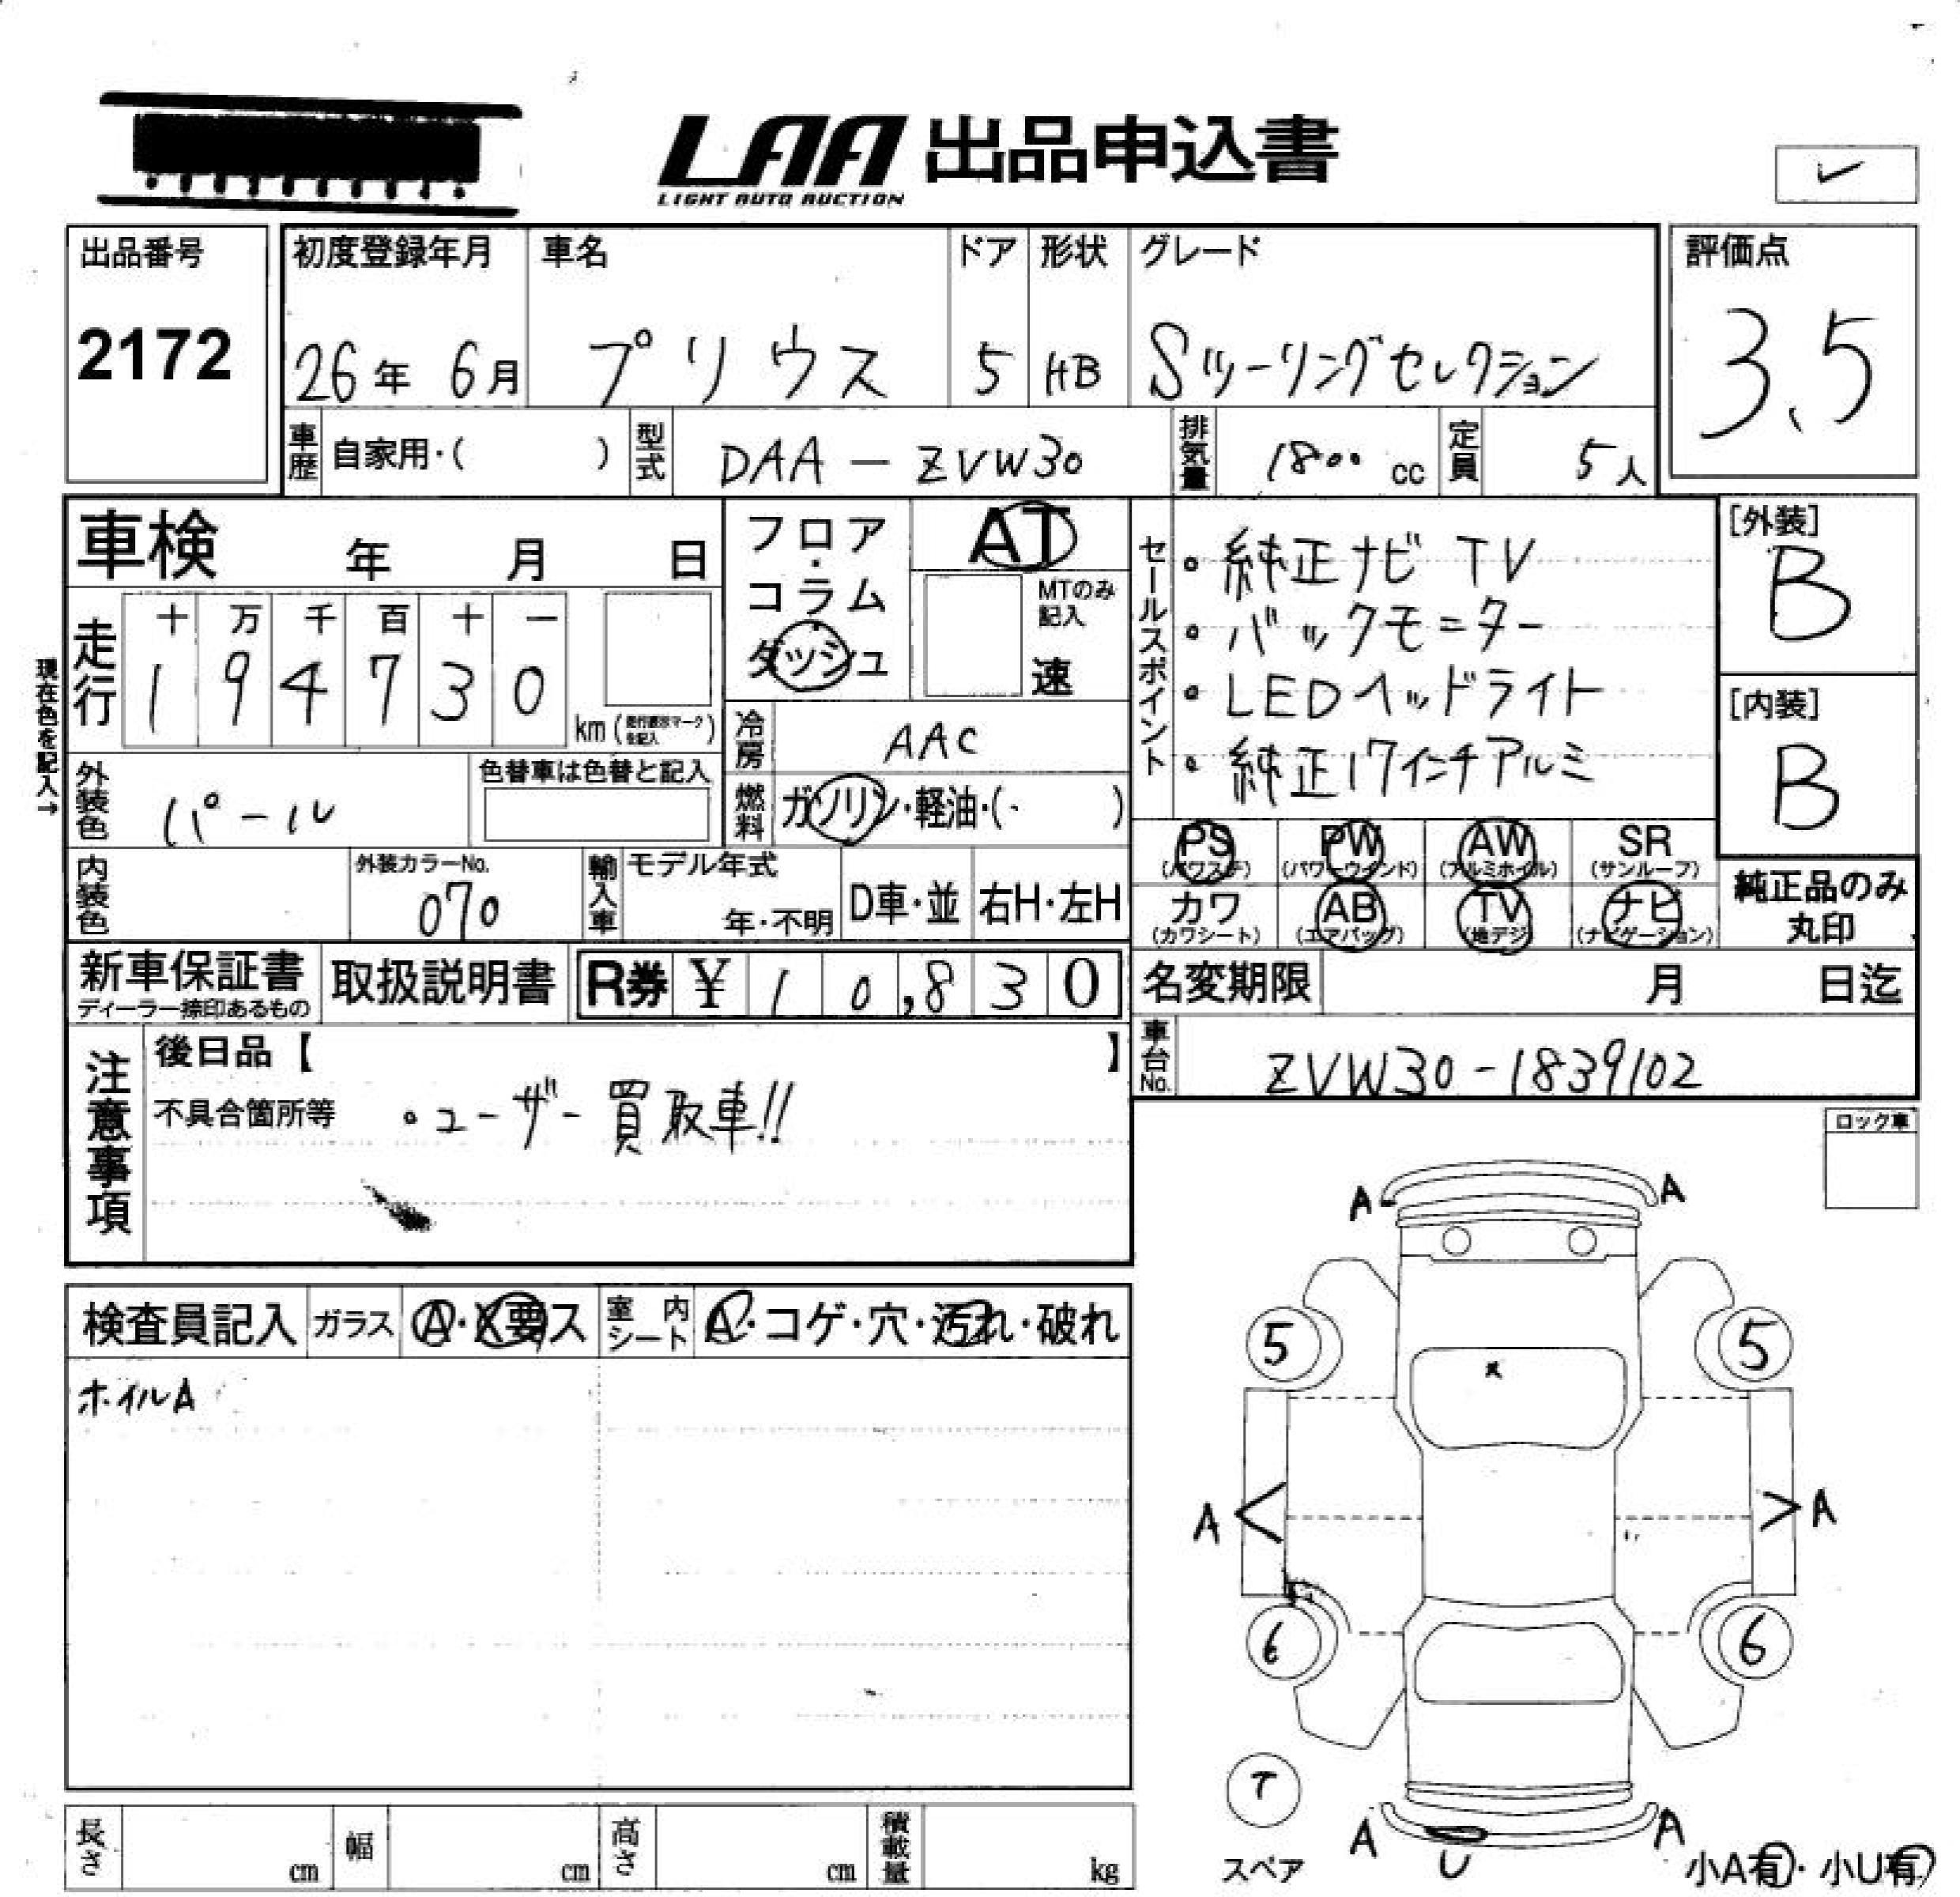 LAA 出品申込書
LIGHT AUTO AUCTION
出品番号
2172
初度登録年月
26年 6月
車名
プリウス
ドア
5
形状
HB
グレード
Sツーリングセレクション
評価点
3.5
車歴 自家用・( )
型式 DAA-ZVW30
排気量 1800 cc
定員 5人
車検 年 月 日
フロア・コラム
ダッシュ
AT
MTのみ記入
速
走行
十 万 千 百 十 一
1 9 4 7 3 0
km(走行表示マークを記入)
現在色を記入→
冷房 AAC
外装色 パール
色替車は色替と記入
燃料 ガソリン・軽油・( )
内装色
外装カラーNo.
070
輸入車
モデル年式
年・不明
D車・並
右H・左H
セールスポイント
・純正ナビ TV
・バックモニター
・LEDヘッドライト
・純正17インチアルミ
[外装]
B
[内装]
B
PS (パワステ)
PW (パワーウインド)
AW (アルミホイル)
SR (サンルーフ)
カワ (カワシート)
AB (エアバッグ)
TV (地デジ)
ナビ (ナビゲーション)
純正品のみ
丸印
新車保証書
ディーラー捺印あるもの
取扱説明書
R券 ¥ 10,830
名変期限 月 日迄
車台No. ZVW30-1839102
注意事項
後日品【 】
不具合箇所等 ・ユーザー買取車!!
ロック車
検査員記入
ガラス A・X要ス
室内シート A・コゲ・穴・汚れ・破れ
ホイルA
A A
5 5
x
A A
6 6
T
スペア
A A
U
小A有・小U有
長さ cm
幅 cm
高さ cm
積載量 kg